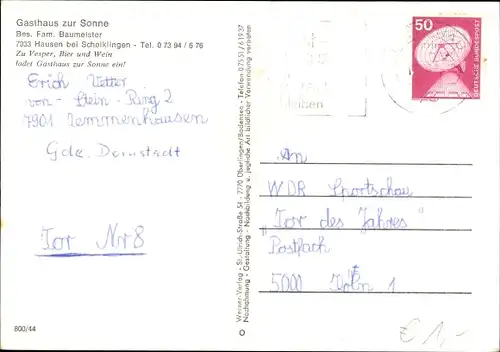 Gasthaus zur Sonne
Bes. Fam. Baumeister
7933 Hausen bei Schelklingen - Tel. 0 73 94 / 6 76
Zu Vesper, Bier und Wein
ladet Gasthaus zur Sonne ein!
Erich Vetter
von-Stein-Ring 2
7901 Temmenhausen
Gde. Dornstadt
Tor Nr 8
800/44
Werner-Verlag - St.-Ulrich-Straße 54 - 7770 Überlingen/Bodensee - Telefon 07551/61937
Nachahmung - Gestaltung - Nachbildung u. jegliche Art bildlicher Verwendung verboten
50
DEUTSCHE BUNDESPOST
An
WDR Sportschau
"Tor des Jahres"
Postfach
5000 Köln 1
€ 1,-